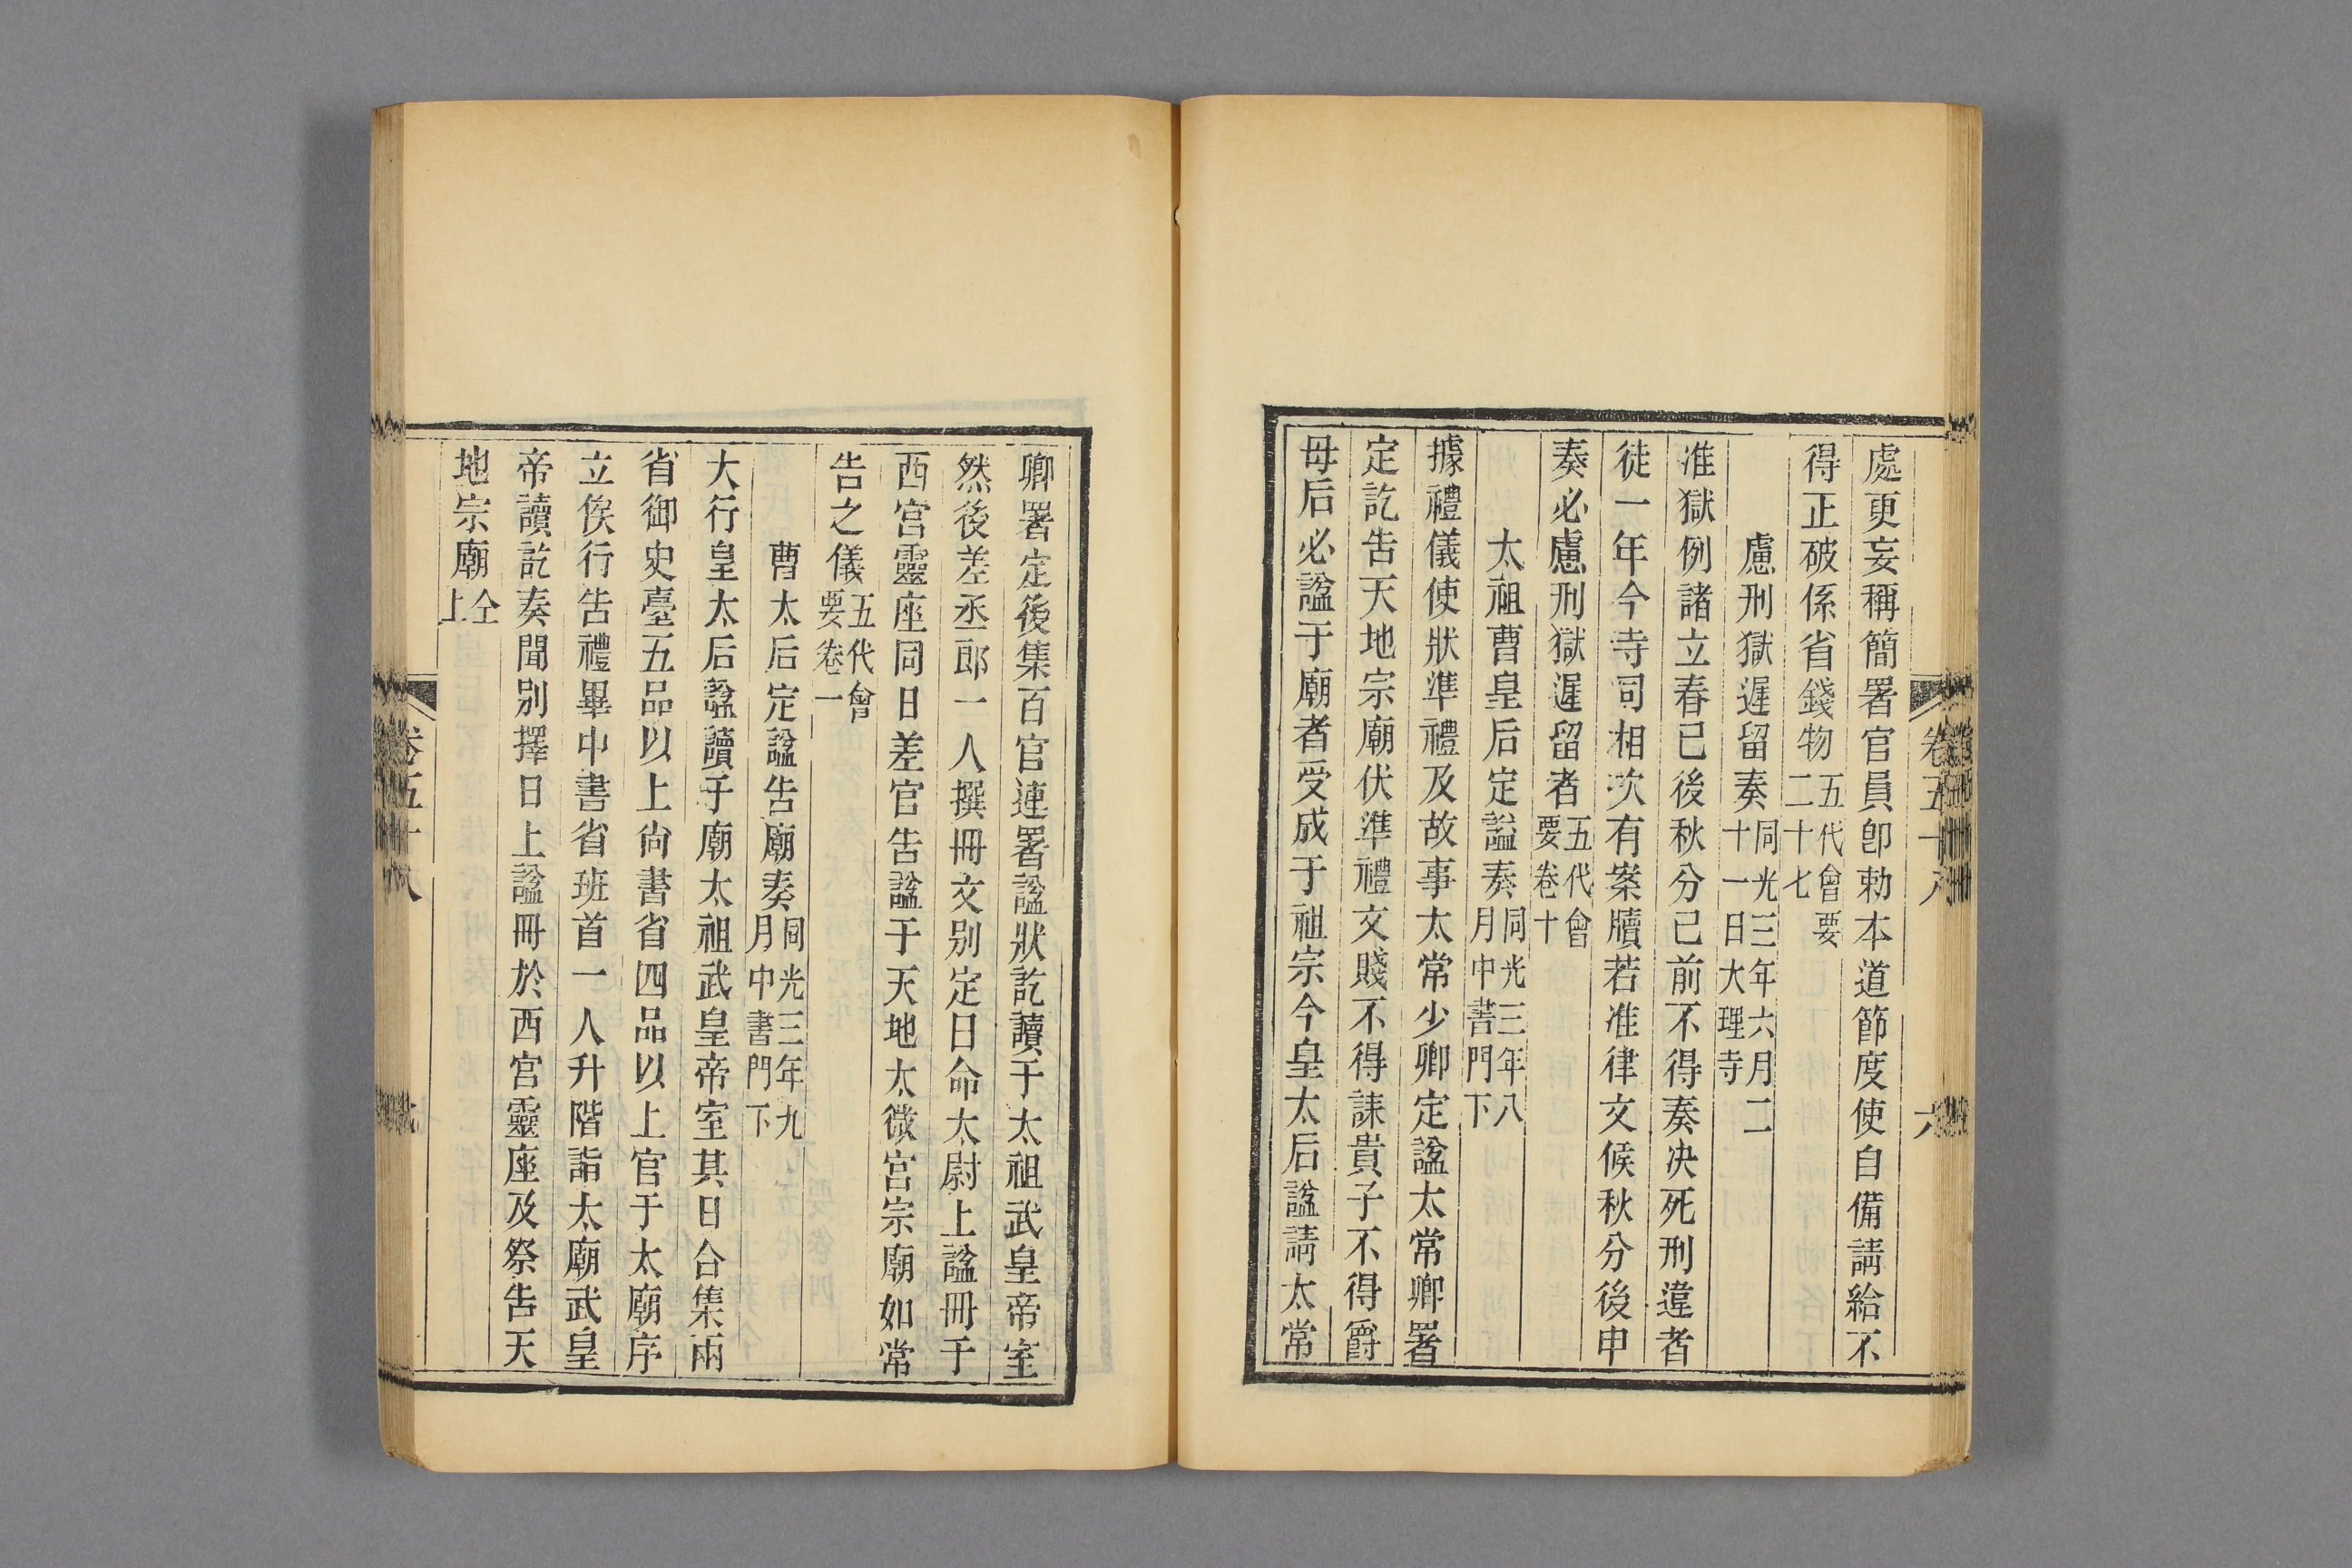 處更妄稱簡署官員卽勅本道節度使自備請給不
得正破係省錢物五代會要二十七
慮刑獄遲留奏同光三年六月二十一日大理寺
准獄例諸立春已後秋分已前不得奏決死刑違者
徒一年今寺司相次有案牘若准律文候秋分後申
奏必慮刑獄遲留者五代會要卷十
太祖曹皇后定諡奏同光三年八月中書門下
據禮儀使狀準禮及故事太常少卿定諡太常卿署
定訖告天地宗廟伏準禮文賤不得誄貴子不得爵
母后必諡于廟者受成于祖宗今皇太后諡請太常
卷五十八
六
卿署定後集百官連署諡狀訖讀于太祖武皇帝室
然後差丞郎一人撰冊文別定日命太尉上諡冊于
西宮靈座同日差官告諡于天地太微宮宗廟如常
告之儀五代會要卷一
曹太后定諡告廟奏同光三年九月中書門下
大行皇太后諡讀于廟太祖武皇帝室其日合集兩
省御史臺五品以上尙書省四品以上官于太廟序
立俟行告禮畢中書省班首一人升階詣太廟武皇
帝讀訖奏聞別擇日上諡冊於西宮靈座及祭告天
地宗廟仝上
卷五十八